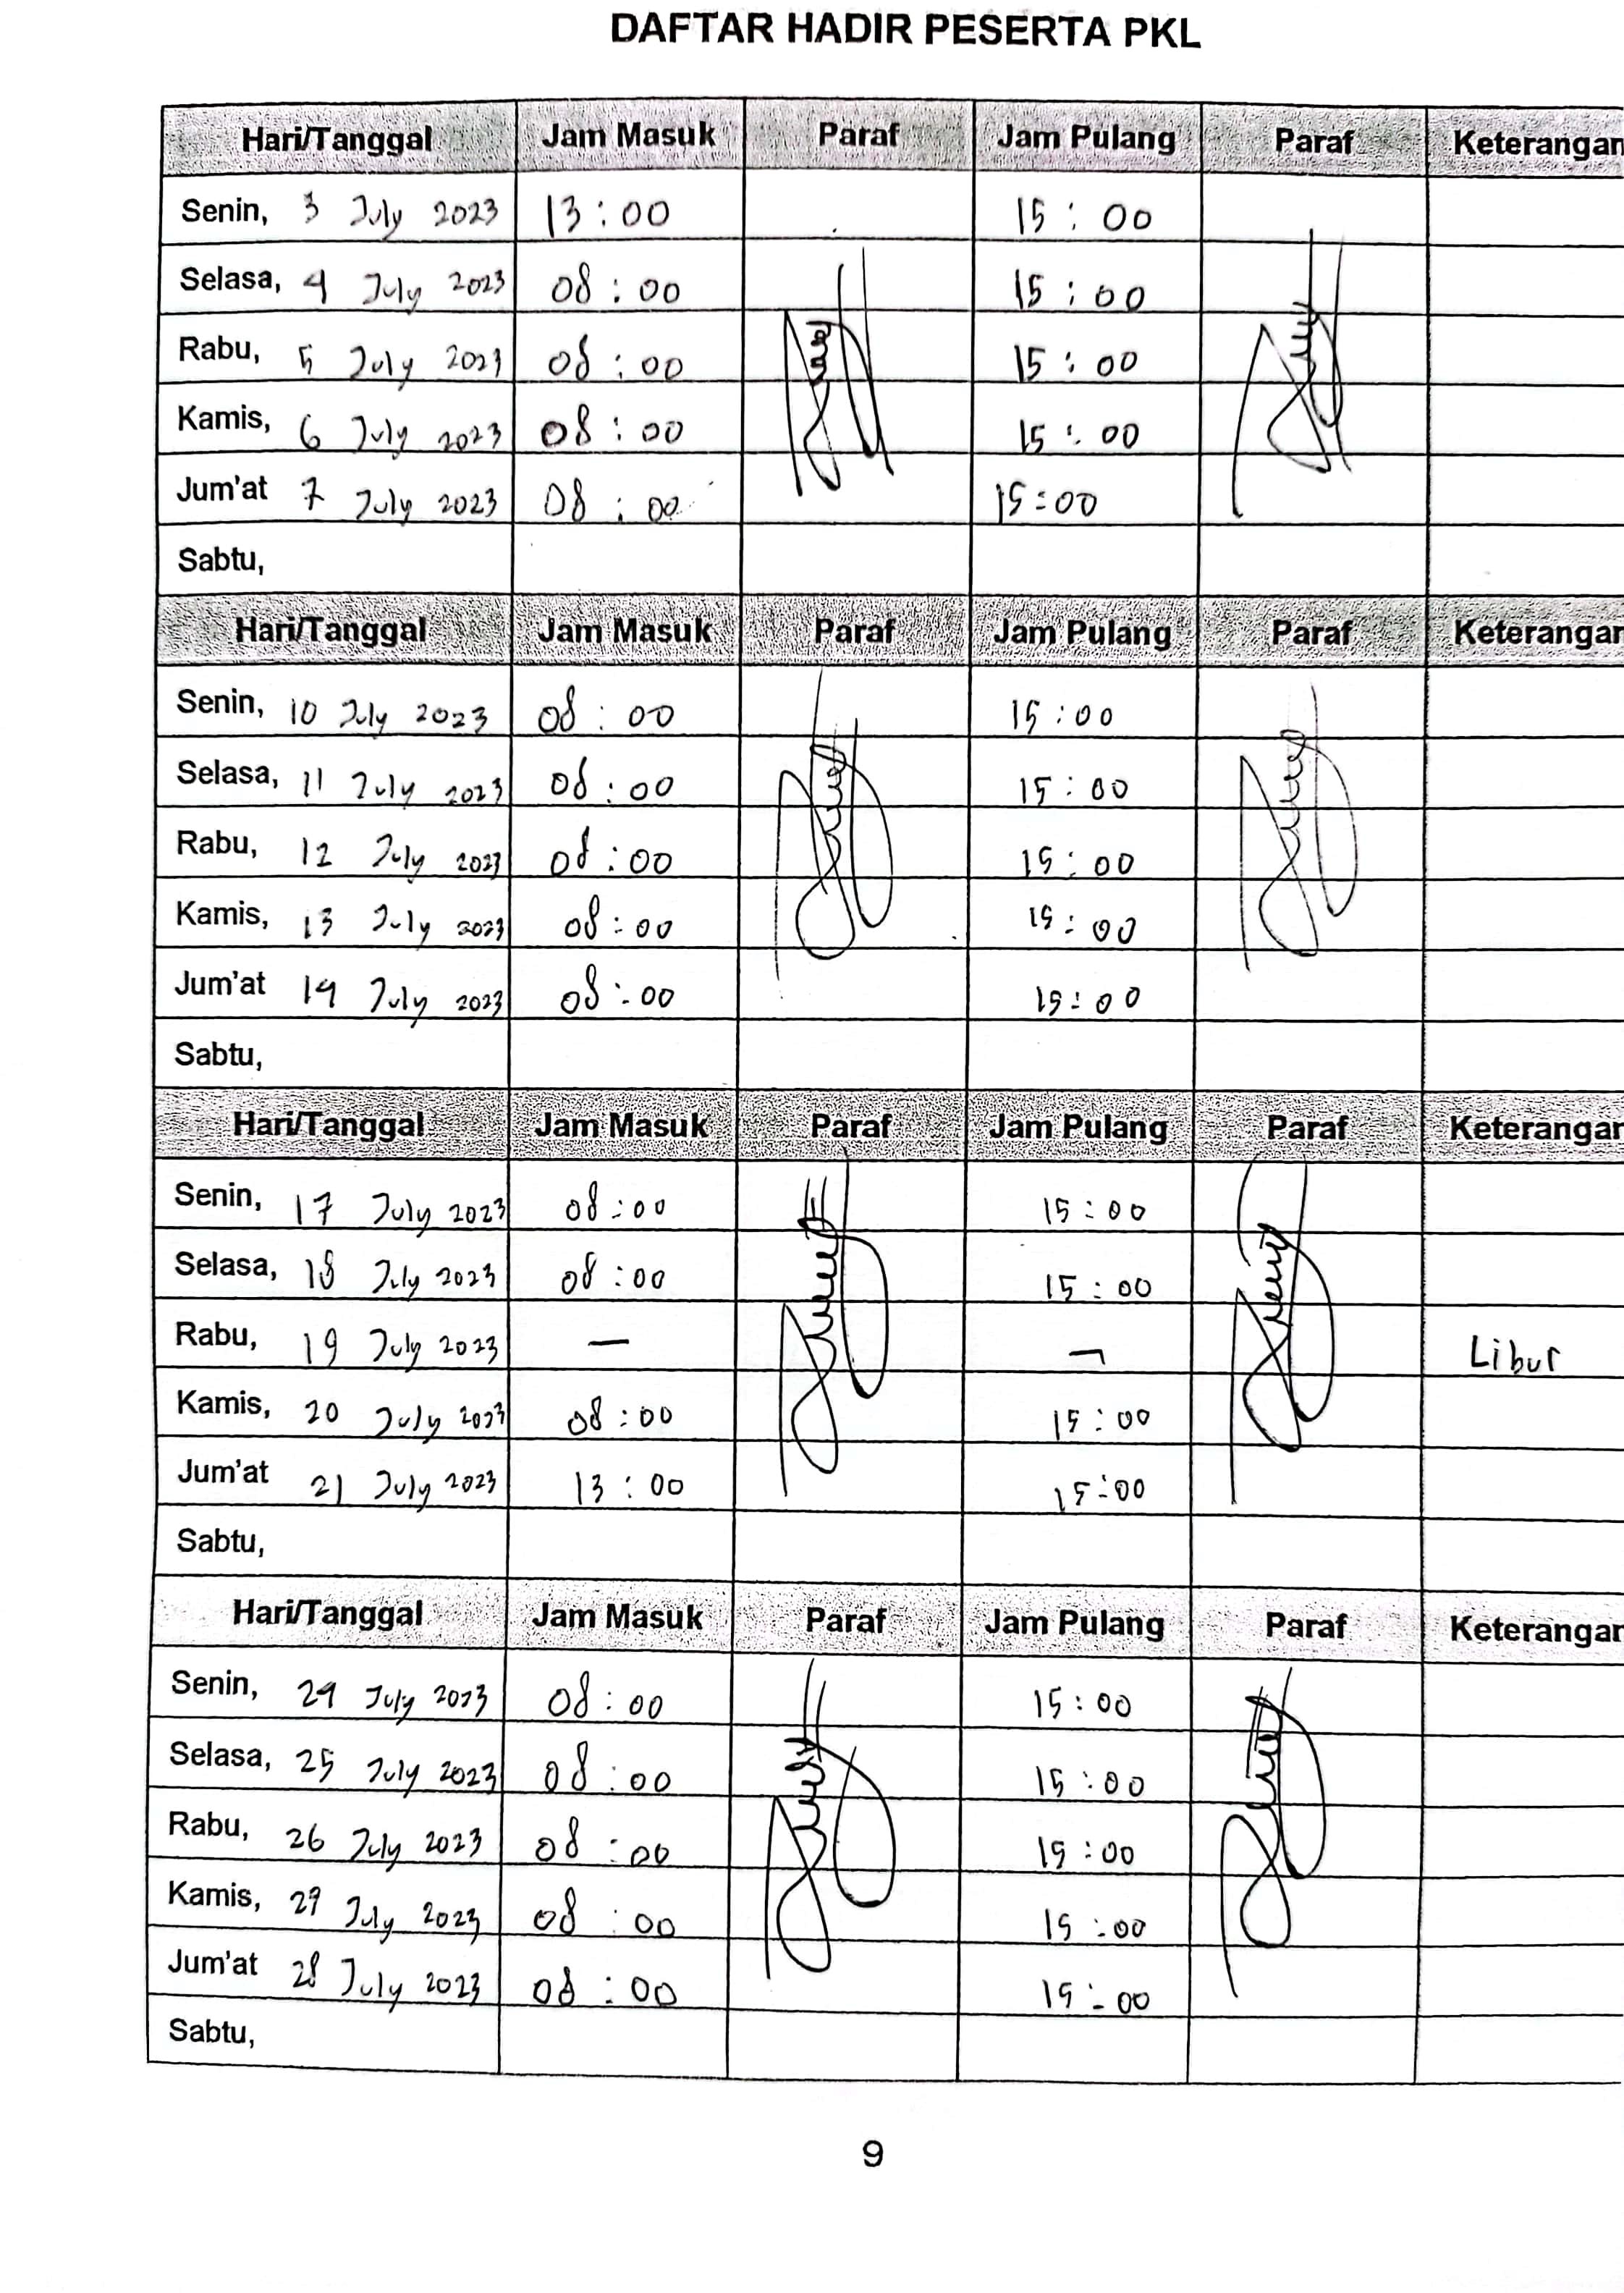 DAFTAR HADIR PESERTA PKL
Hari/Tanggal Jam Masuk Paraf Jam Pulang Paraf Keterangan
Senin, 3 July 2023 13:00 15:00
Selasa, 4 July 2023 08:00 15:00
Rabu, 5 July 2023 08:00 15:00
Kamis, 6 July 2023 08:00 15:00
Jum'at 7 July 2023 08:00 15:00
Sabtu,
Hari/Tanggal Jam Masuk Paraf Jam Pulang Paraf Keterangan
Senin, 10 July 2023 08:00 15:00
Selasa, 11 July 2023 08:00 15:00
Rabu, 12 July 2023 08:00 15:00
Kamis, 13 July 2023 08:00 15:00
Jum'at 14 July 2023 08:00 15:00
Sabtu,
Hari/Tanggal Jam Masuk Paraf Jam Pulang Paraf Keterangan
Senin, 17 July 2023 08:00 15:00
Selasa, 18 July 2023 08:00 15:00
Rabu, 19 July 2023 — — Libur
Kamis, 20 July 2023 08:00 15:00
Jum'at 21 July 2023 13:00 15:00
Sabtu,
Hari/Tanggal Jam Masuk Paraf Jam Pulang Paraf Keterangan
Senin, 24 July 2023 08:00 15:00
Selasa, 25 July 2023 08:00 15:00
Rabu, 26 July 2023 08:00 15:00
Kamis, 27 July 2023 08:00 15:00
Jum'at 28 July 2023 08:00 15:00
Sabtu,
9